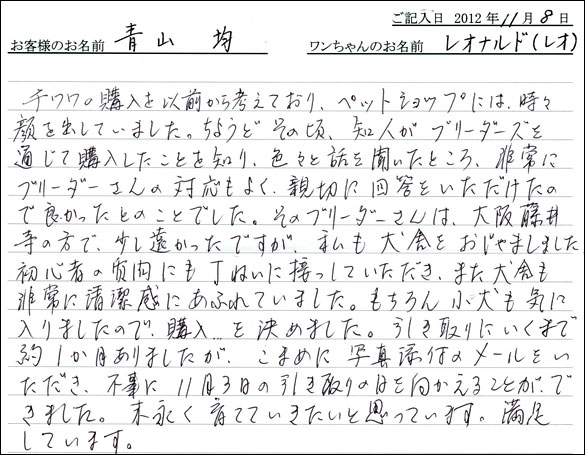 ご記入日 2012年11月8日
お客様のお名前 青山 均 ワンちゃんのお名前 レオナルド(レオ)
チワワの購入を以前から考えており、ペットショップには、時々
顔を出していました。ちょうどその頃、知人がブリーダーズを
通じて購入したことを知り、色々と話を聞いたところ、非常に
ブリーダーさんの対応もよく、親切に回答をいただけたの
で良かったとのことでした。そのブリーダーさんは、大阪藤井
寺の方で、少し遠かったですが、私も犬舎をおじゃましました
初心者の質問にも丁ねいに接っしていただき、また犬舎も
非常に清潔感にあふれていました。もちろん小犬も気に
入りましたので、購入...を決めました。引き取りにいくまで
約1か月ありましたが、こまめに写真添付のメールをい
ただき、不事に11月3日の引き取りの日を向かえることがで
きました。末永く育てていきたいと思っています。満足
しています。